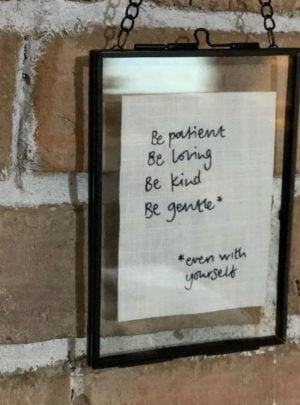 Be patient
Be loving
Be kind
Be gentle*
*even with
yourself